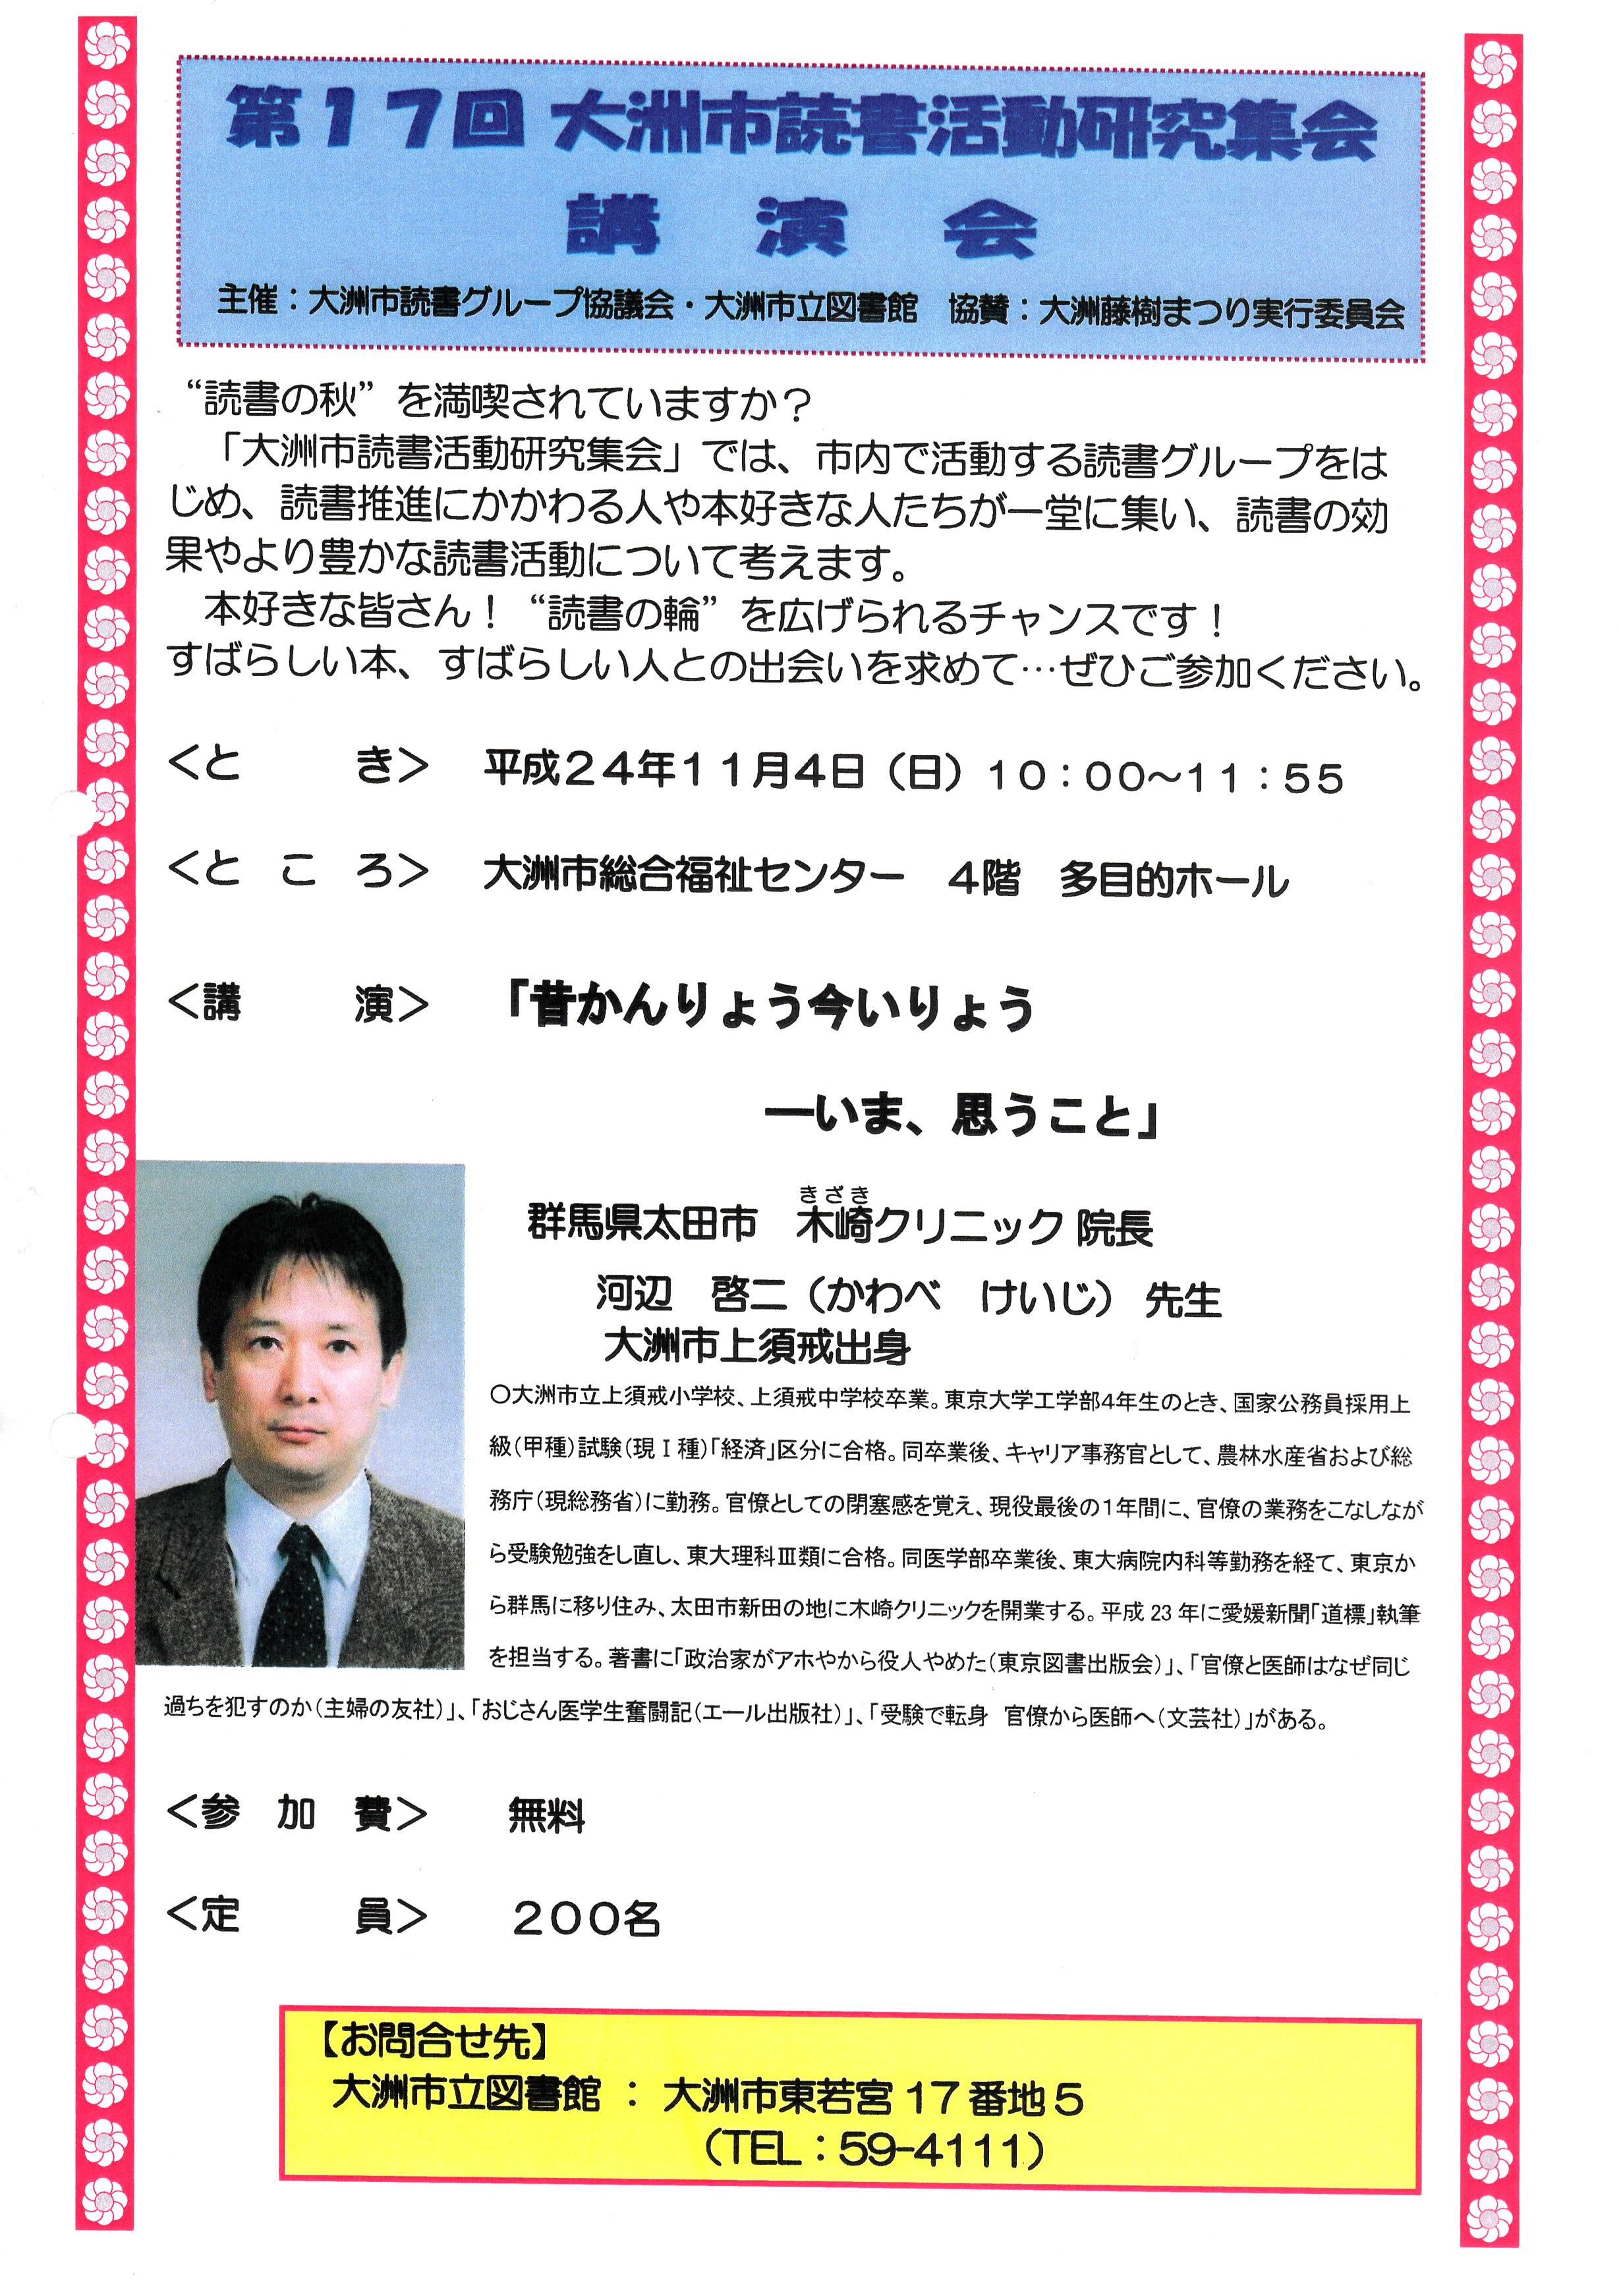 第１７回 大洲市読書活動研究集会
講　演　会
主催：大洲市読書グループ協議会・大洲市立図書館　協賛：大洲藤樹まつり実行委員会
“読書の秋”を満喫されていますか？
「大洲市読書活動研究集会」では、市内で活動する読書グループをは
じめ、読書推進にかかわる人や本好きな人たちが一堂に集い、読書の効
果やより豊かな読書活動について考えます。
本好きな皆さん！“読書の輪”を広げられるチャンスです！
すばらしい本、すばらしい人との出会いを求めて…ぜひご参加ください。
＜と　　　き＞　平成２４年１１月４日（日）１０：００～１１：５５
＜と　こ　ろ＞　大洲市総合福祉センター　４階　多目的ホール
＜講　　　演＞　「昔かんりょう今いりょう
―いま、思うこと」
きざき
群馬県太田市　木崎クリニック 院長
河辺　啓二（かわべ　けいじ）　先生
大洲市上須戒出身
○大洲市立上須戒小学校、上須戒中学校卒業。東京大学工学部4年生のとき、国家公務員採用上
級（甲種）試験（現Ⅰ種）「経済」区分に合格。同卒業後、キャリア事務官として、農林水産省および総
務庁（現総務省）に勤務。官僚としての閉塞感を覚え、現役最後の1年間に、官僚の業務をこなしなが
ら受験勉強をし直し、東大理科Ⅲ類に合格。同医学部卒業後、東大病院内科等勤務を経て、東京か
ら群馬に移り住み、太田市新田の地に木崎クリニックを開業する。平成 23 年に愛媛新聞「道標」執筆
を担当する。著書に「政治家がアホやから役人やめた（東京図書出版会）」、「官僚と医師はなぜ同じ
過ちを犯すのか（主婦の友社）」、「おじさん医学生奮闘記（エール出版社）」、「受験で転身　官僚から医師へ（文芸社）」がある。
＜参　加　費＞　無料
＜定　　　員＞　２００名
【お問合せ先】
大洲市立図書館 ： 大洲市東若宮 17 番地 5
（TEL：59-4111）